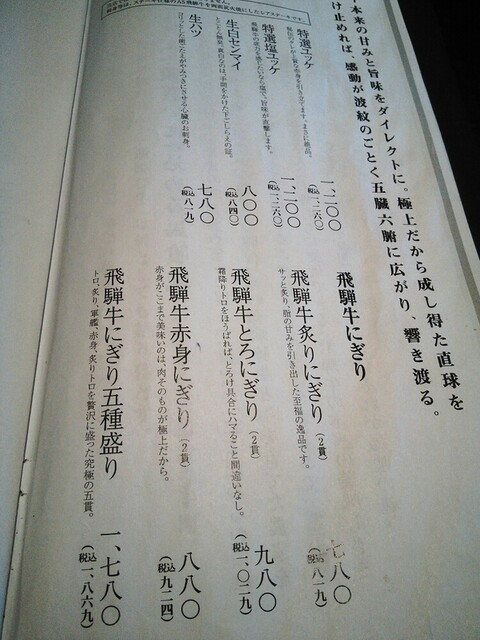 本来の甘みと旨味をダイレクトに。極上だから成し得た直球を
け止めれば、感動が波紋のごとく五臓六腑に広がり、響き渡る。
特選ユッケ
一、二〇〇
(税込一、二六〇)
特選塩ユッケ
一、二〇〇
(税込一、二六〇)
生白センマイ
八〇〇
(税込八四〇)
生ハツ
七八〇
(税込八一九)
飛騨牛にぎり
飛騨牛炙りにぎり(2貫)
サッと炙り、脂の甘みを引き出した至福の逸品です。
七八〇
(税込八一九)
飛騨牛とろにぎり(2貫)
霜降りトロをほうばれば、とろけ具合にハマること間違いなし。
九八〇
(税込一、〇二九)
飛騨牛赤身にぎり(2貫)
赤身がここまで美味いのは、肉そのものが極上だから。
八八〇
(税込九二四)
飛騨牛にぎり五種盛り
トロ、炙り、軍艦、赤身、炙りトロを贅沢に盛った究極の五貫。
一、七八〇
(税込一、八六九)